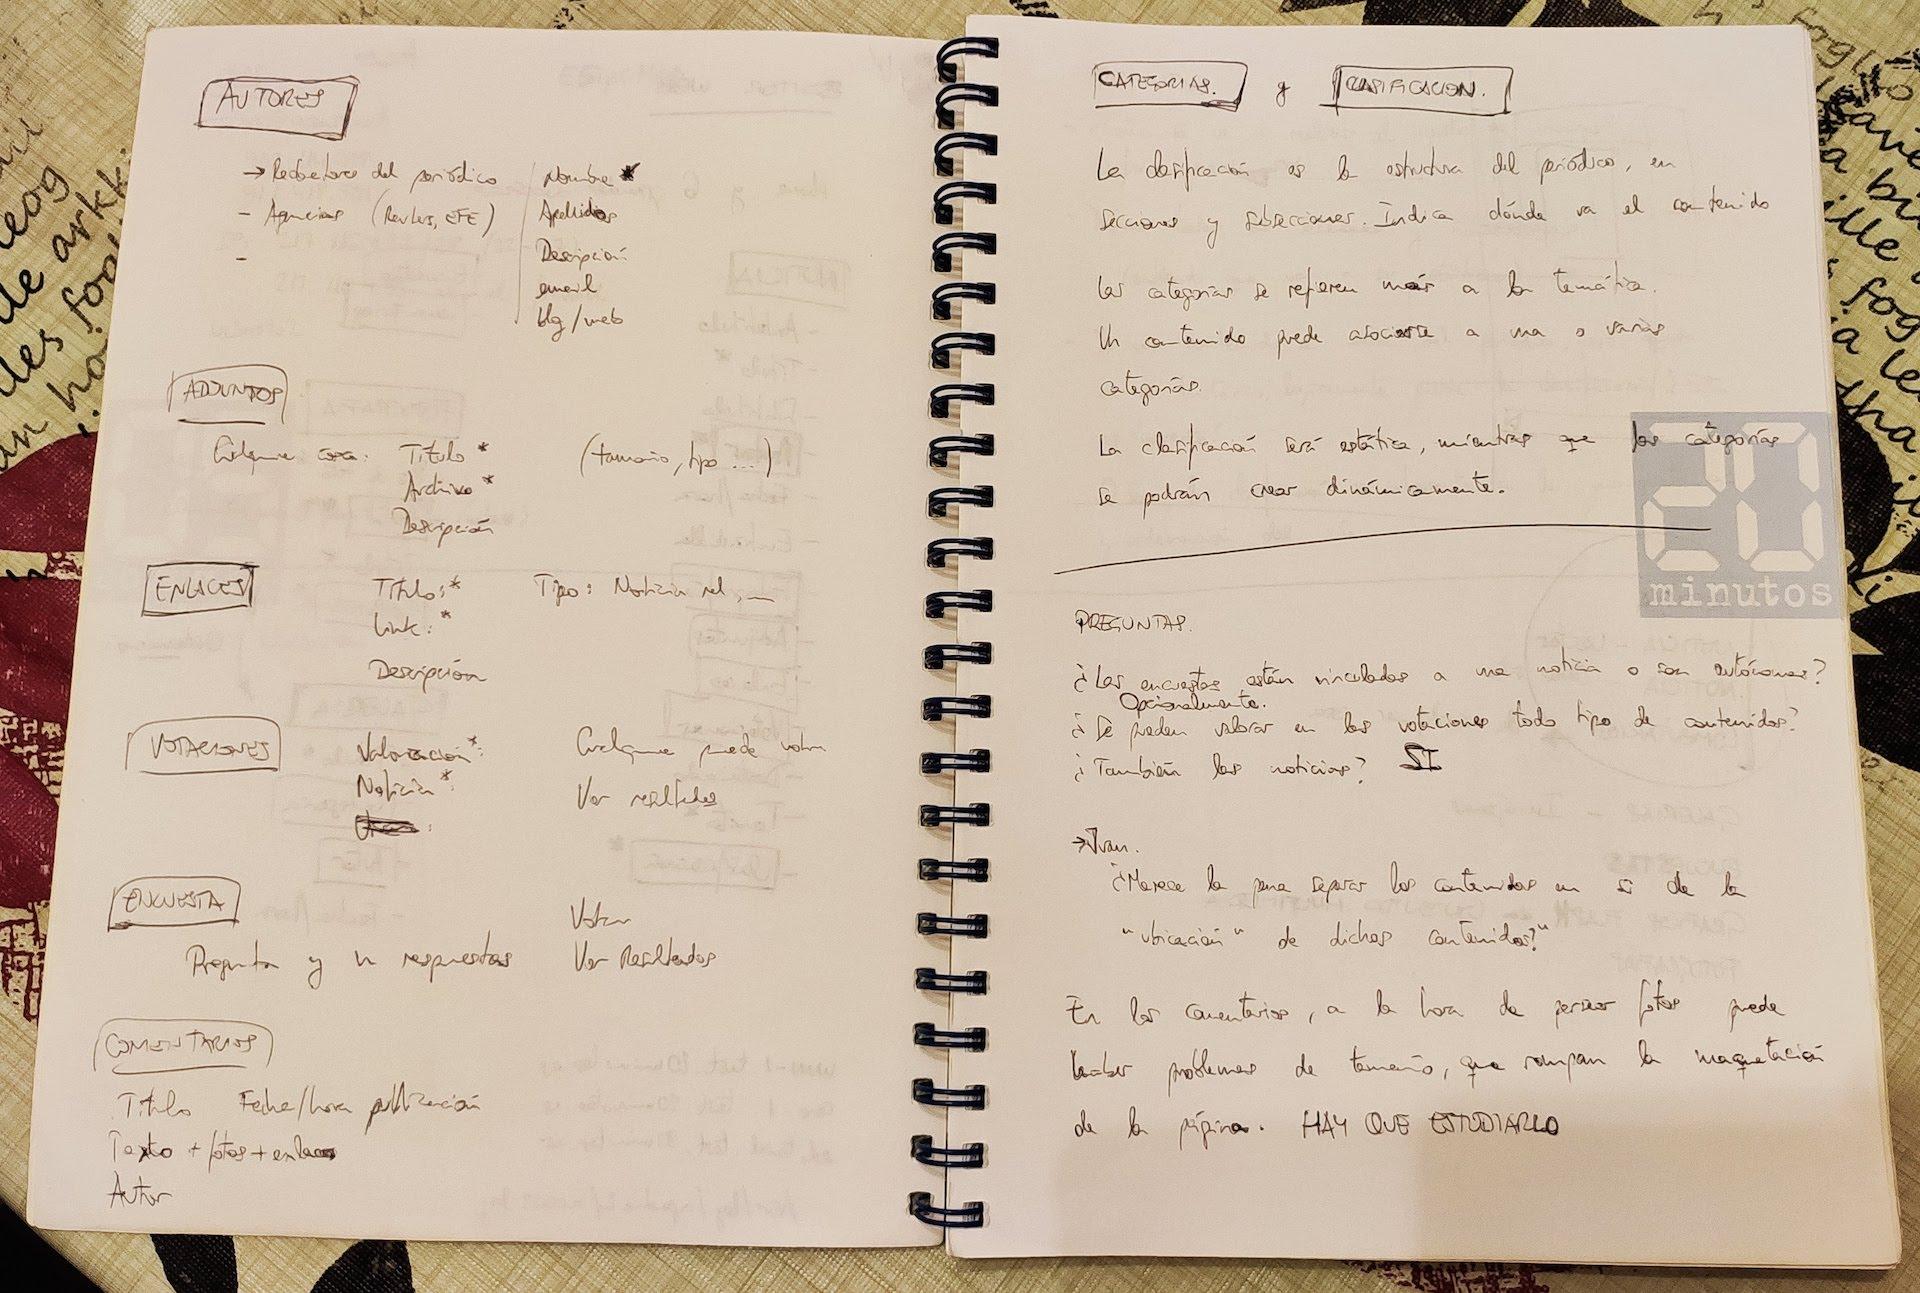 AUTORES
→ Redactores del periódico
- Agencias (Reuters, EFE)
-
Nombre *
Apellidos
Descripción
email
blog/web
ADJUNTOS
Cualquier cosa: Título * (tamaño, tipo ...)
Archivo *
Descripción
ENLACES
Título: * Tipo: Noticia rel, __
Link: *
Descripción
VOTACIONES
Valoración *: Cualquiera puede votar
Noticia *: Ver resultados
ENCUESTA
Votar
Pregunta y n respuestas Ver Resultados
COMENTARIOS
Título Fecha/hora publicación
Texto + fotos + enlaces
Autor
CATEGORIAS. y CLASIFICACION.
La clasificación es la estructura del periódico, en
secciones y subsecciones. Indica dónde va el contenido
Las categorías se refieren más a la temática.
Un contenido puede asociarse a una o varias
categorías.
La clasificación será estática, mientras que las categorías
se podrán crear dinámicamente.
20
minutos
PREGUNTAS.
¿Las encuestas están vinculadas a una noticia o son autónomas?
Opcionalmente.
¿Se pueden valorar en las votaciones todo tipo de contenidos?
¿También las noticias? SI
→ Ivan.
¿Merece la pena separar los contenidos en si de la
"ubicación" de dichos contenidos?"
En los comentarios, a la hora de permitir fotos puede
haber problemas de tamaño, que rompan la maquetación
de la página. HAY QUE ESTUDIARLO